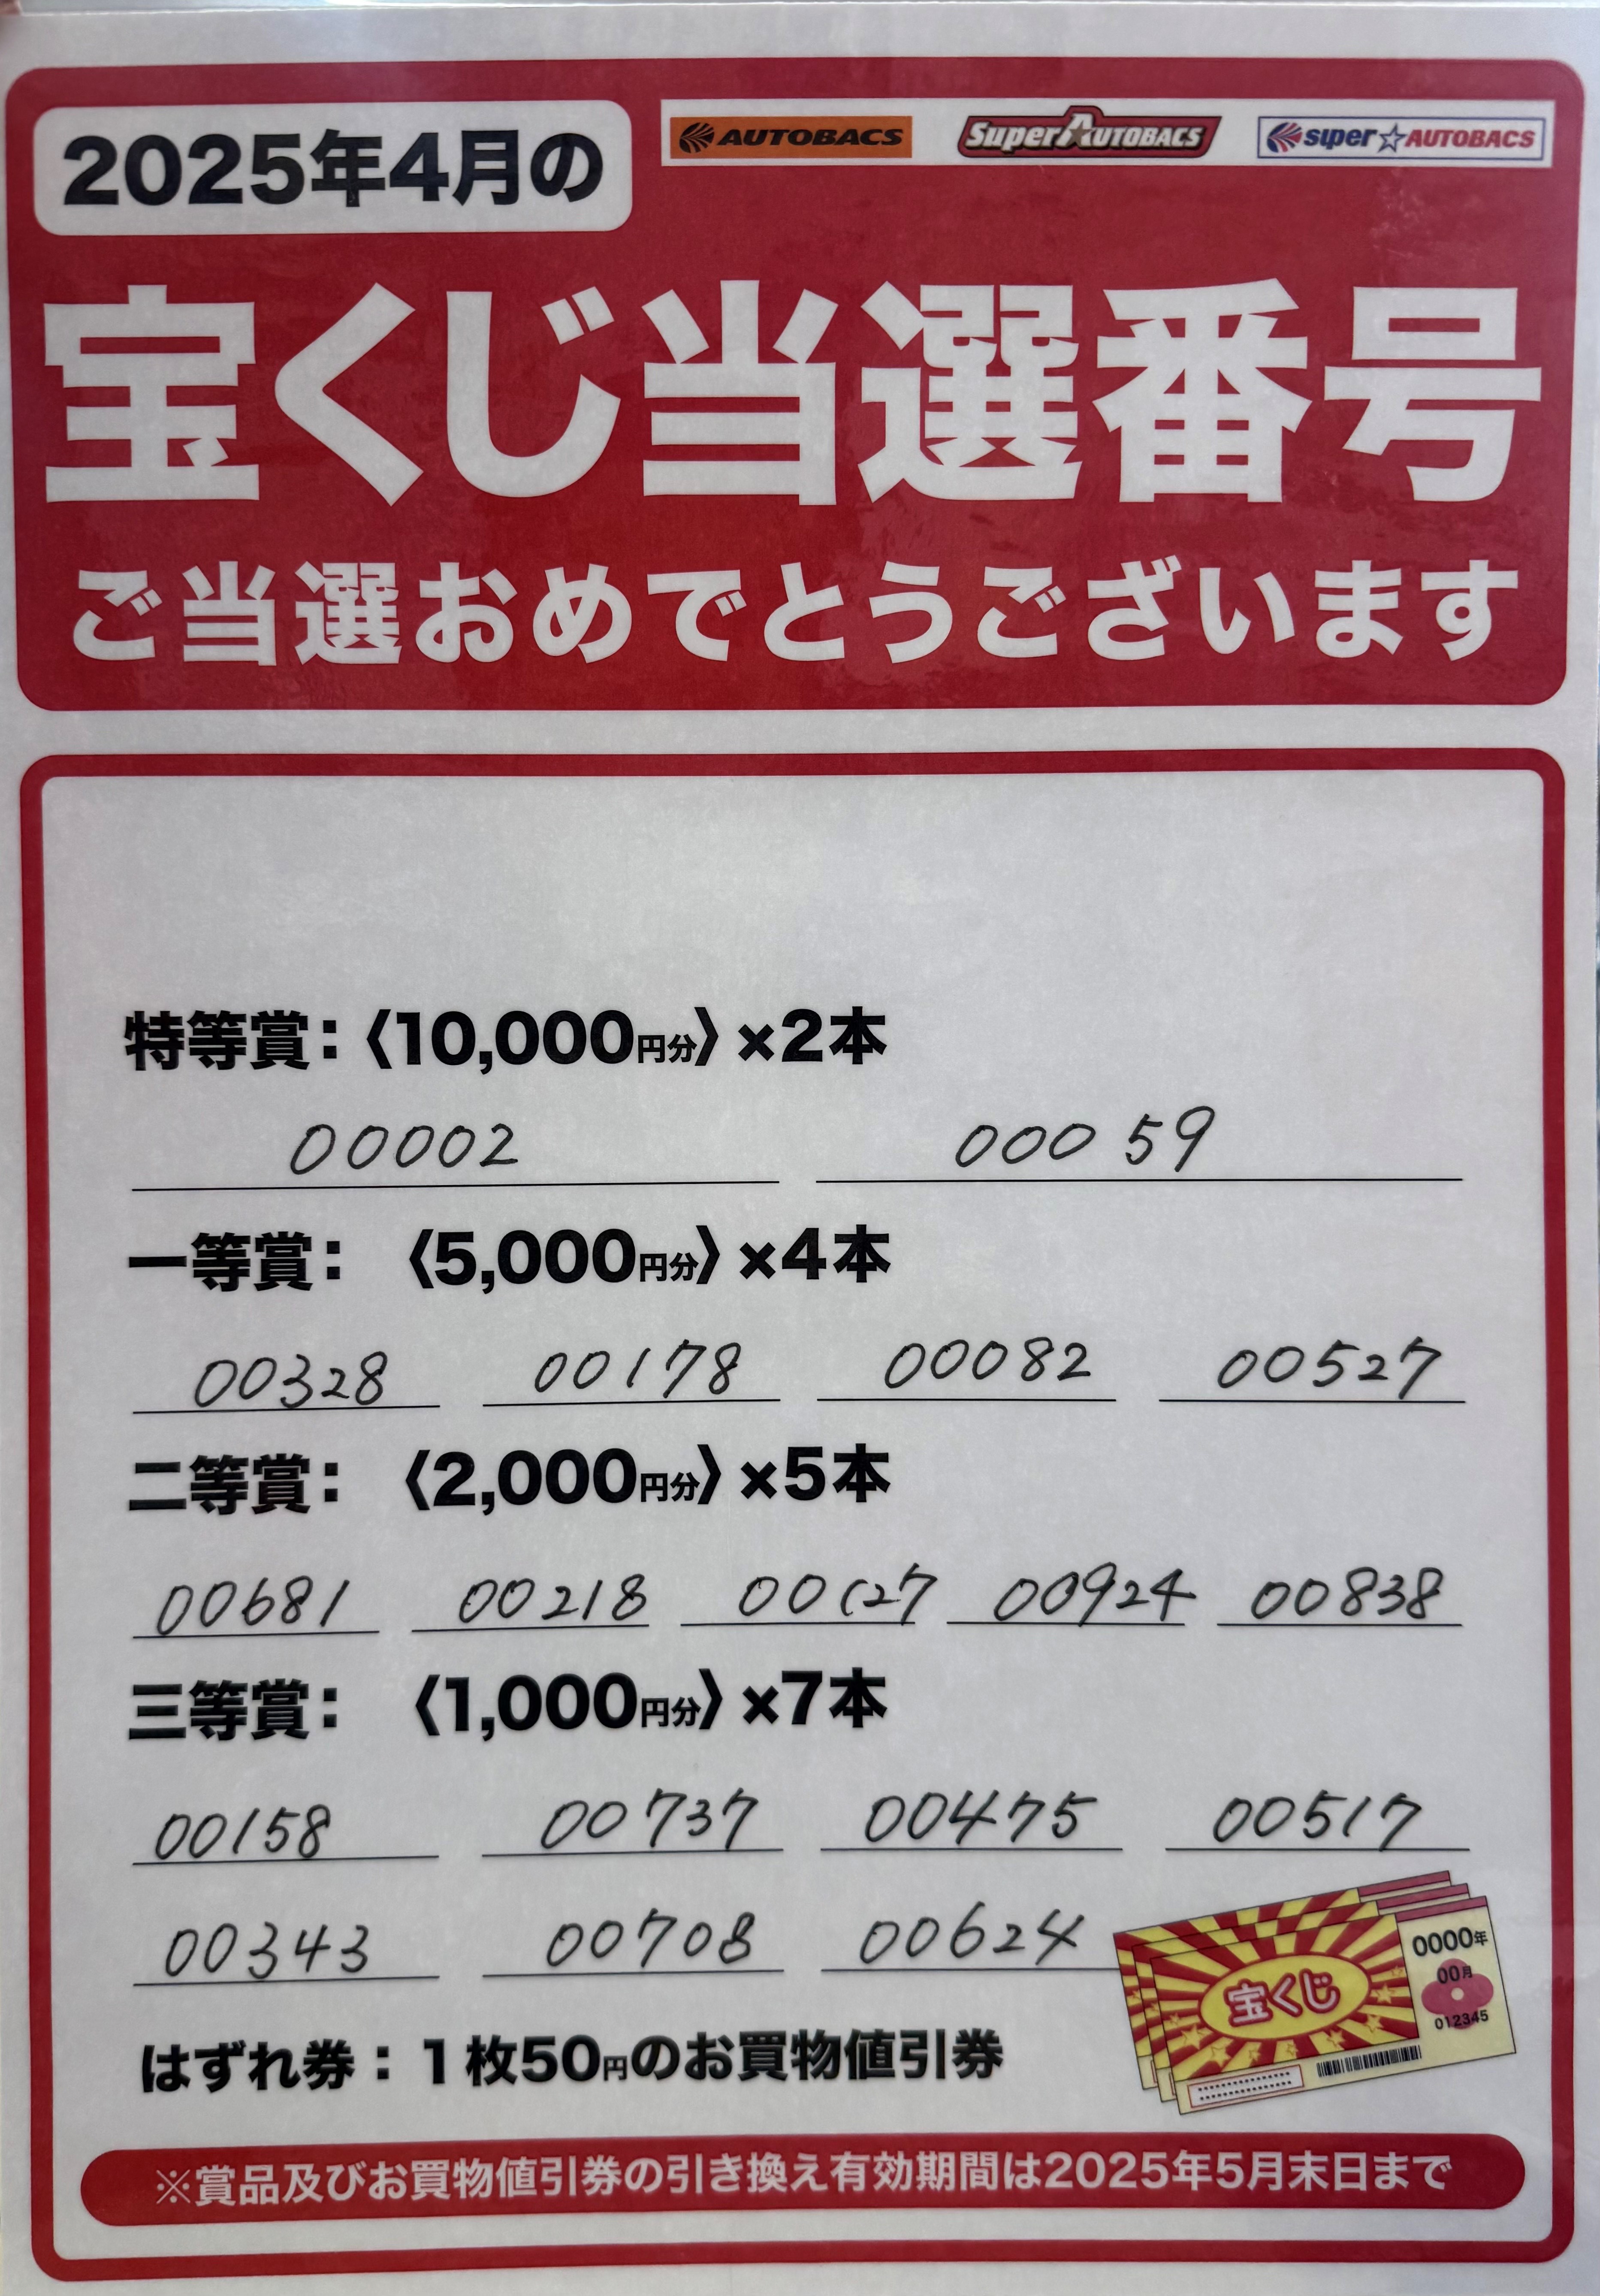 2025年4月の
AUTOBACS Super AUTOBACS super AUTOBACS
宝くじ当選番号
ご当選おめでとうございます
特等賞：〈10,000円分〉×2本
00002 00059
一等賞：〈5,000円分〉×4本
00328 00178 00082 00527
二等賞：〈2,000円分〉×5本
00681 00218 00127 00924 00838
三等賞：〈1,000円分〉×7本
00158 00737 00475 00517
00343 00708 00624
0000年
00月
宝くじ
012345
はずれ券：1枚50円のお買物値引券
※賞品及びお買物値引券の引き換え有効期間は2025年5月末日まで